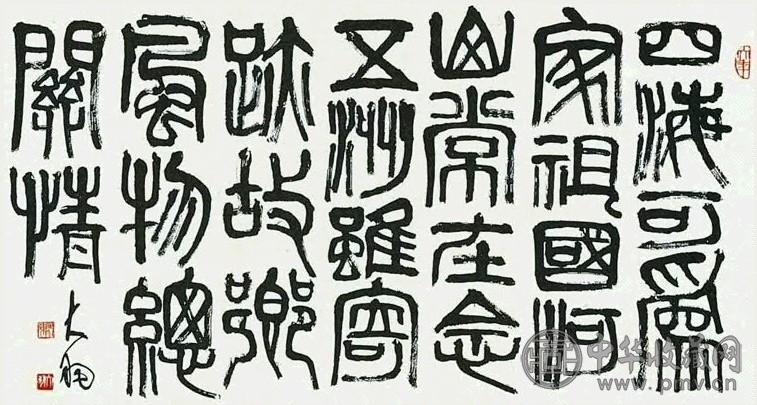 四海可為
家祖國河
山常在念
五洲雖寄
跡故鄉
風物總
關情
大
中华收藏网
www.pmv.cn